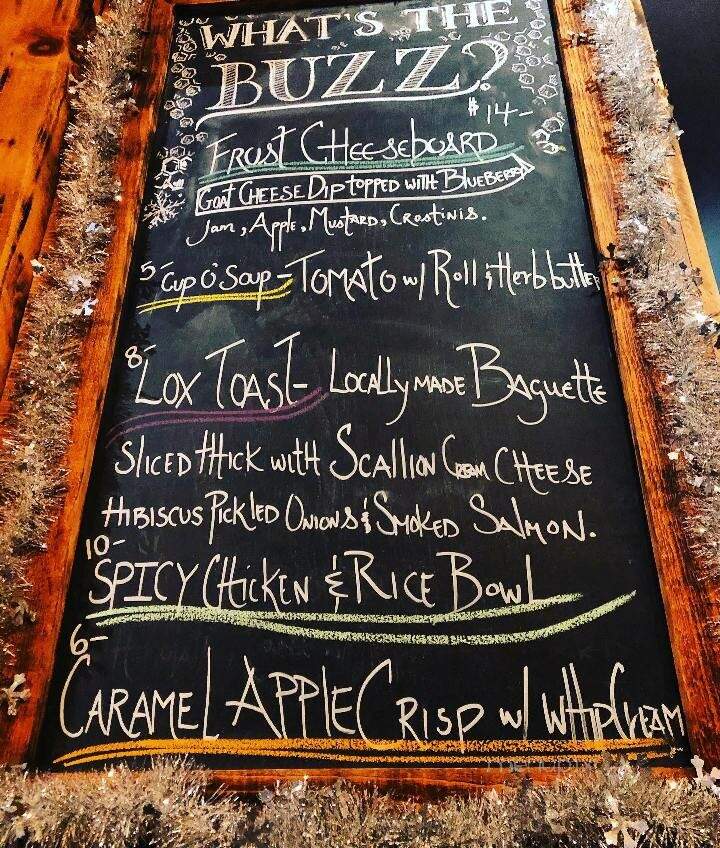 WHAT'S THE
BUZZ?
$14-
FROST CHEESEBOARD
GOAT CHEESE DIP TOPPED WITH BLUEBERRY
Jam, Apple, Mustard, Crostinis.
5- Cup O' Soup - TOMATO w/ Roll & Herb butter
8-
LOX TOAST - LOCALLY MADE BAGUETTE
SLICED THICK WITH SCALLION CREAM CHEESE
HIBISCUS PICKLED ONIONS & SMOKED SALMON.
10-
SPICY CHICKEN & RICE BOWL
6-
CARAMEL APPLE CRISP w/ WHIP CREAM